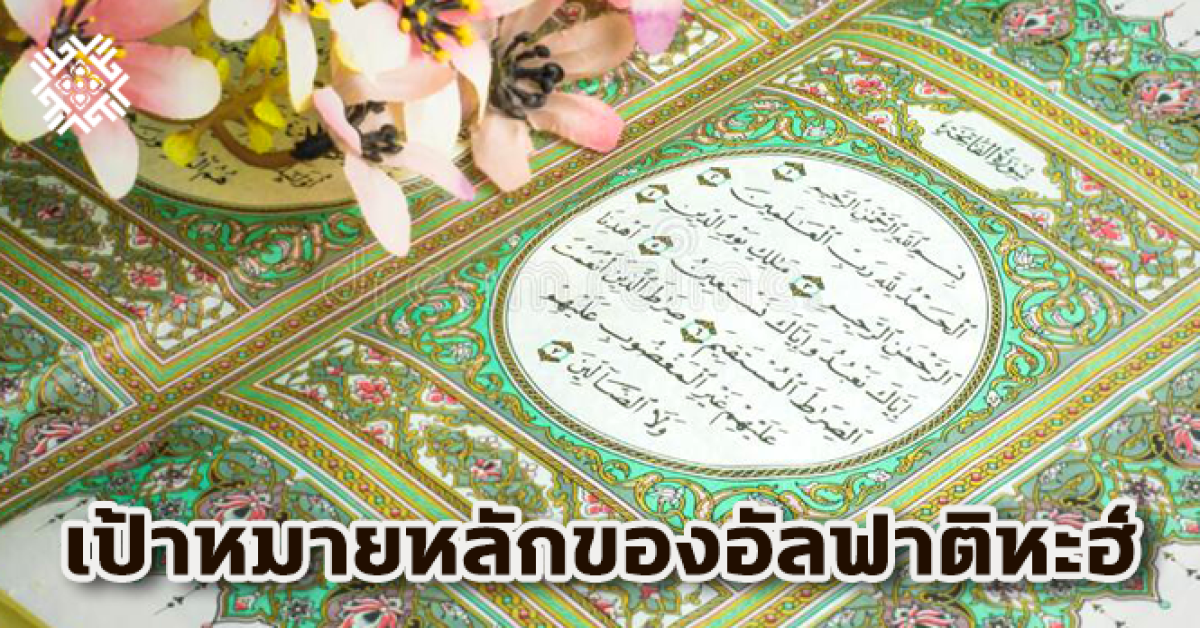 سورة الفاتحة
بسم الله الرحمن الرحيم ١
الحمد لله رب العلمين ٢
الرحمن الرحيم ٣ ملك يوم الدين ٤
إياك نعبد وإياك نستعين ٥ اهدنا
الصراط المستقيم ٦ صراط الذين أنعمت
عليهم غير المغضوب عليهم
ولا الضالين ٧
เป้าหมายหลักของอัลฟาติหะฮ์